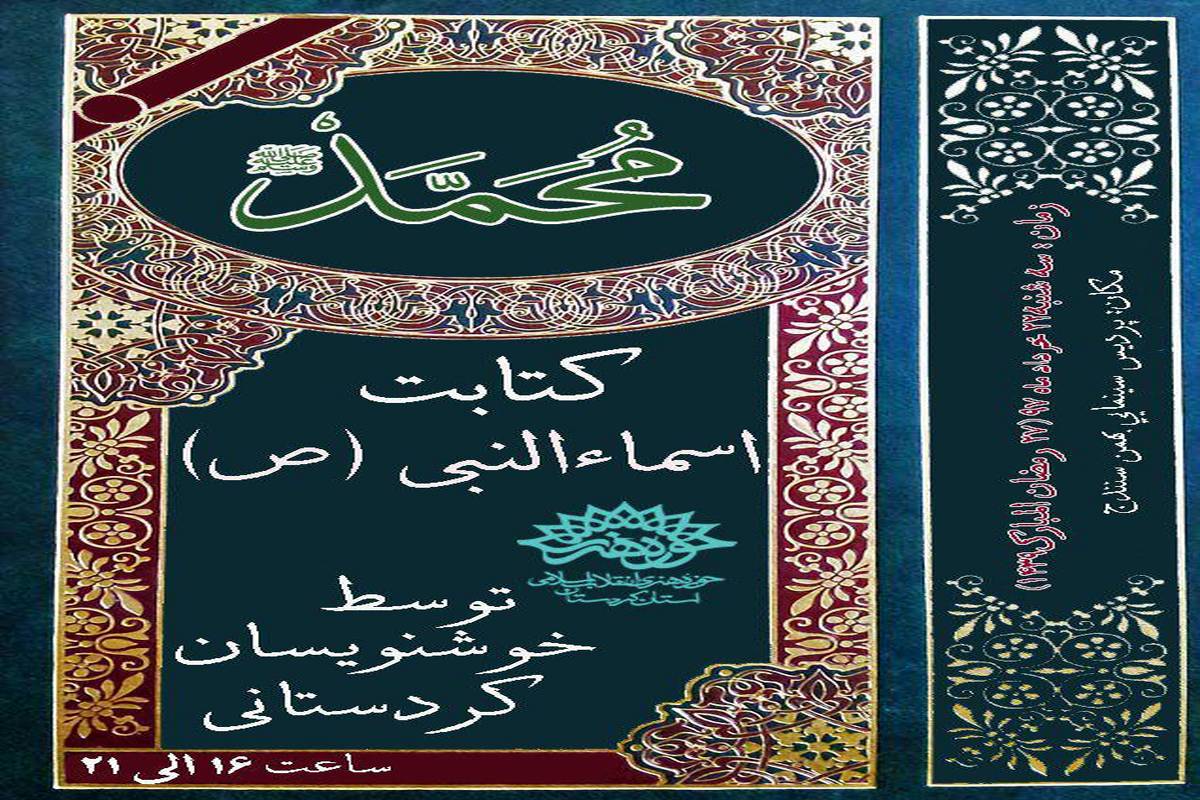 مُحَمَّد ﷺ
کتابت
اسماءالنبی (ص)
حوزه هنری
حوزه هنری انقلاب اسلامی
استان کردستان
توسط
خوشنویسان
کردستانی
ساعت ۱۶ الی ۲۱
زمان: سه شنبه ۲۲ خرداد ماه ۹۷ (۲۷ رمضان المبارک ۱۴۳۹)
مکان: پردیس سینمایی بهمن سنندج